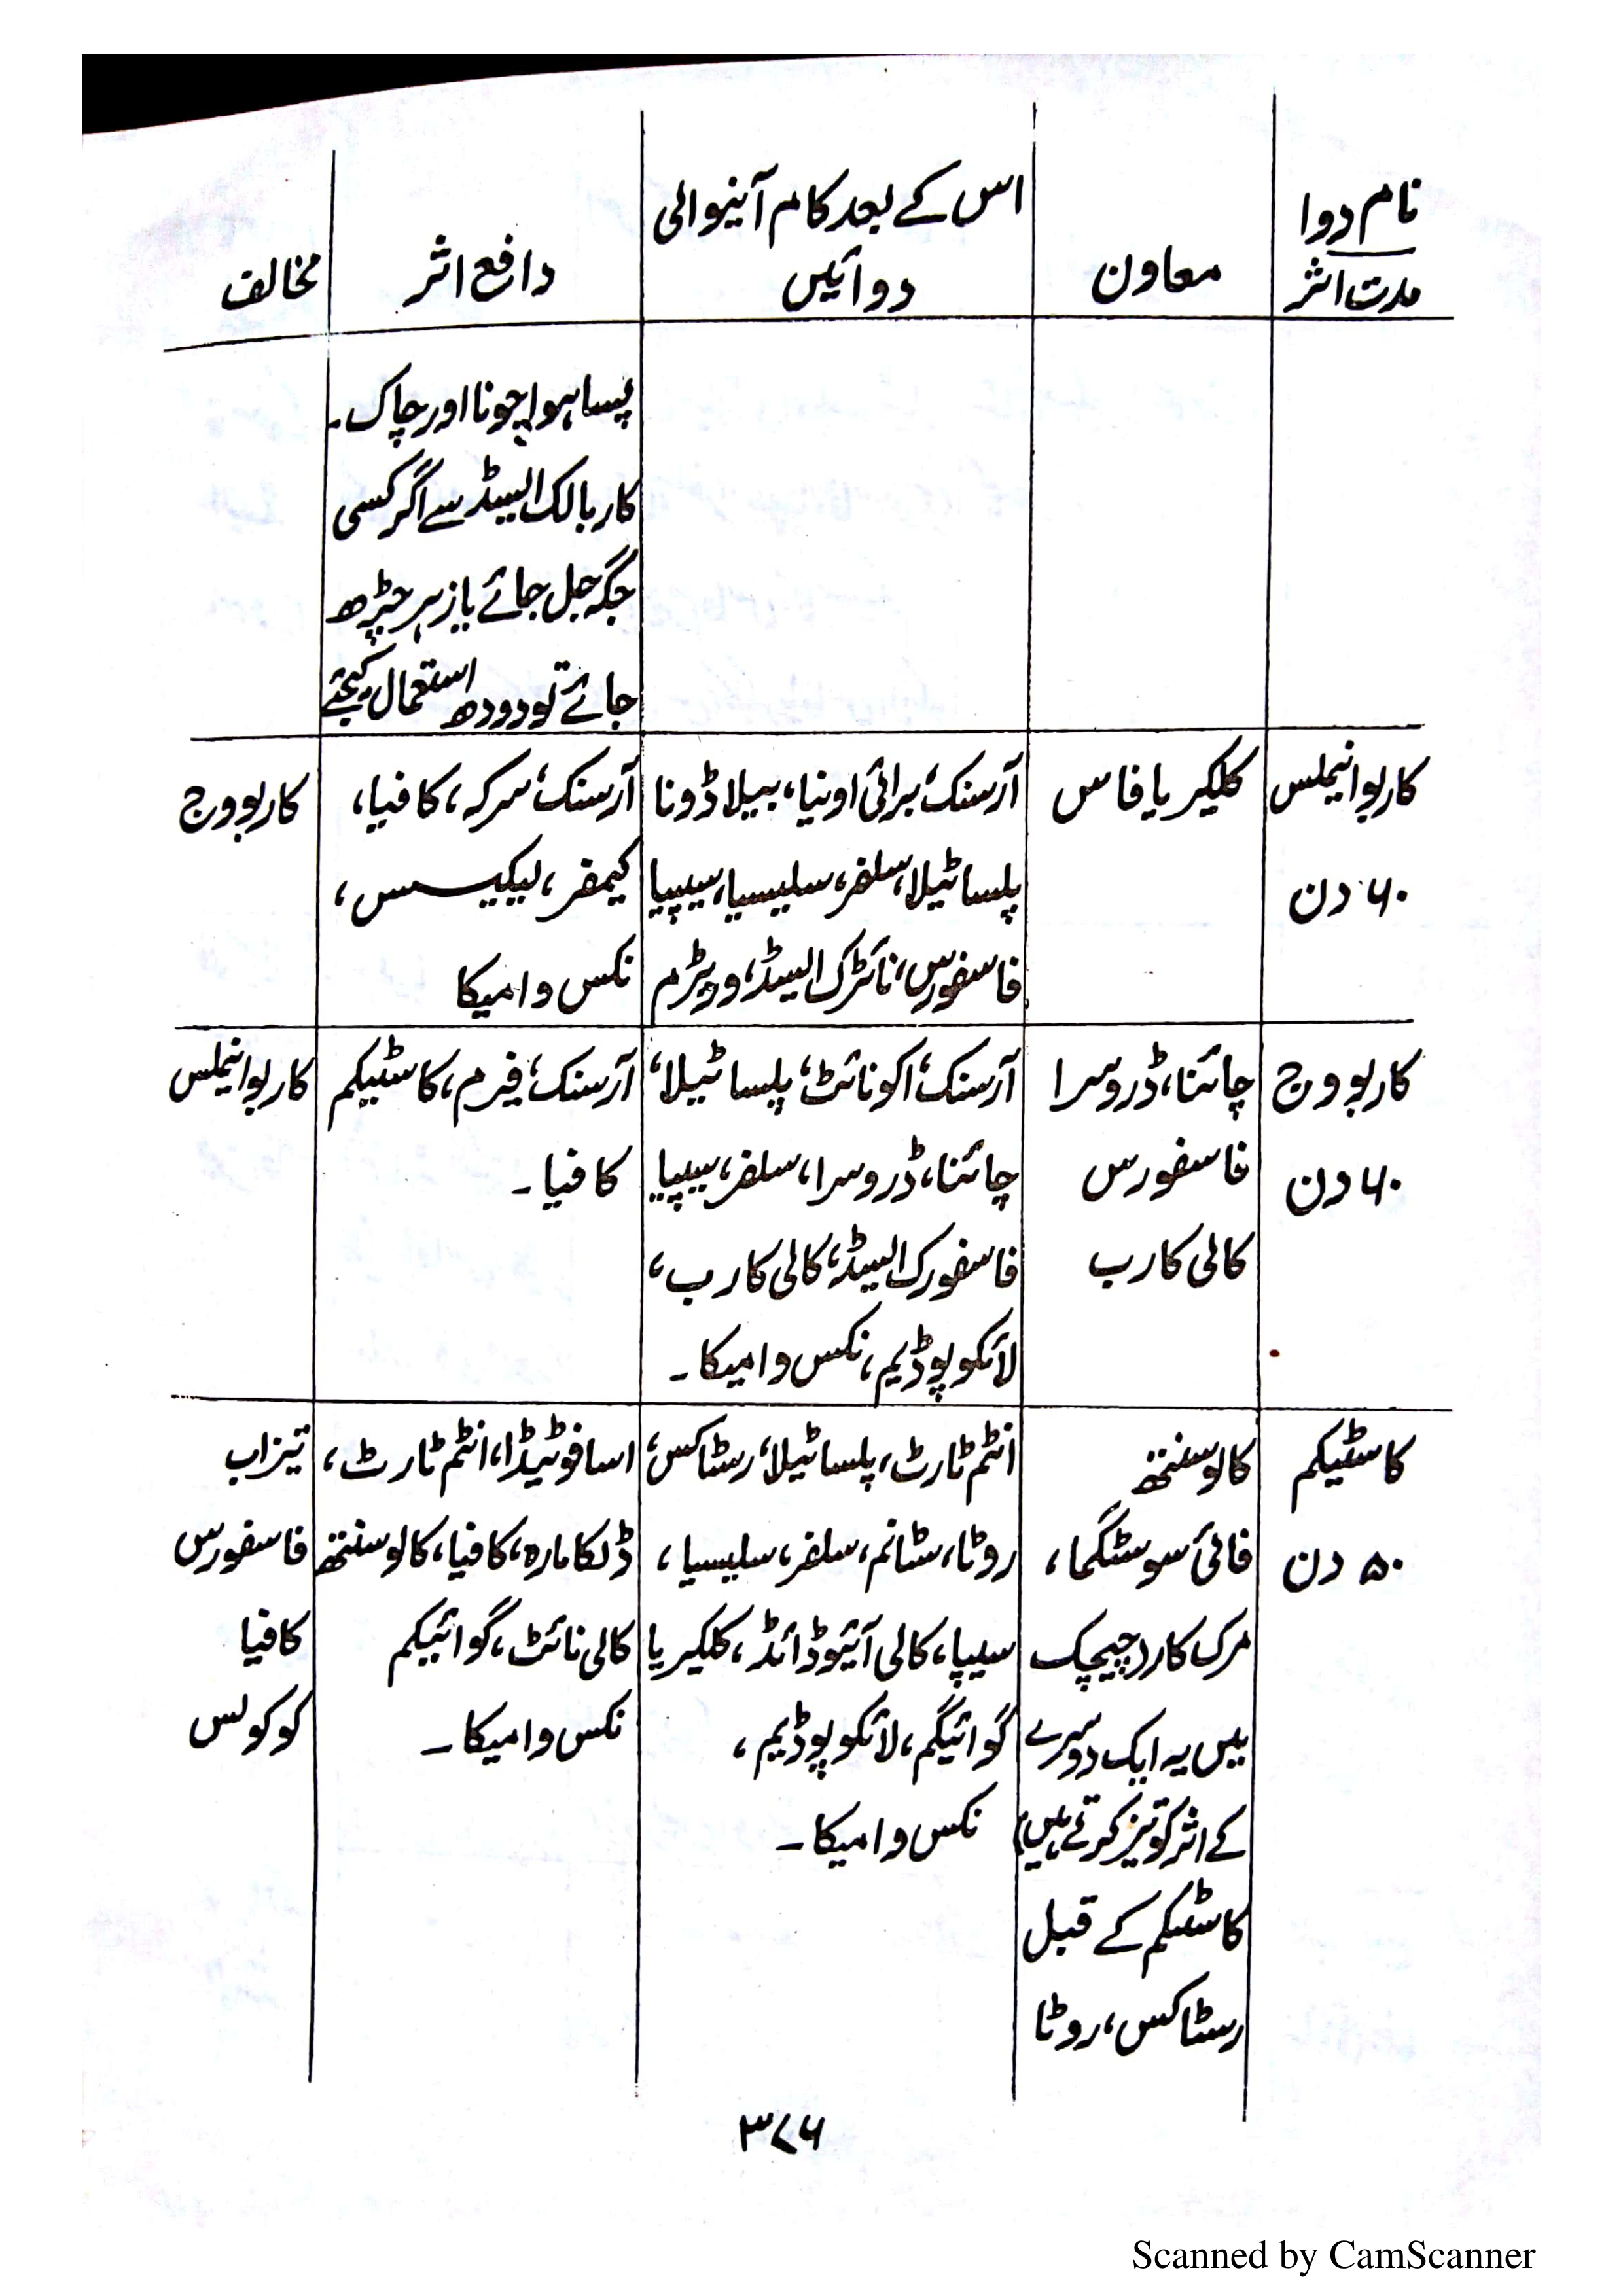 نام دوا
مدت اثر
معاون
اس کے بعد کام آنیوالی
دوائیں
دافع اثر
مخالف
پسا ہوا چونا اور چاک۔
کاربالک ایسڈ سے اگر کسی
جگہ جل جائے یا زہر چڑھ
جائے تو دودھ استعمال کیجئے
کاربو انیملس
۶۰ دن
کلکیریا فاس
آرسنک، برائی اونیا، بیلا ڈونا
پلساٹیلا، سلفر، سلیسیا، سیپیا
فاسفورس، نائٹرک ایسڈ، ویرٹرم
آرسنک، سرکہ، کافیا،
کیمفر، لیکیسس،
نکس وامیکا
کاربو وج
کاربو وج
۶۰ دن
چائنا، ڈروسرا
فاسفورس
کالی کارب
آرسنک، اکونائٹ، پلساٹیلا،
چائنا، ڈروسرا، سلفر، سیپیا
فاسفورک ایسڈ، کالی کارب،
لائکوپوڈیم، نکس وامیکا۔
آرسنک، فیرم، کاسٹیکم
کافیا۔
کاربو انیملس
کاسٹیکم
۵۰ دن
کالوسنتھ
فائی سوسٹگما،
مرک کار (چیچک
میں یہ ایک دوسرے
کے اثر کو تیز کرتے ہیں)
کاسٹکم کے قبل
رسٹاکس، روٹا
انٹم ٹارٹ، پلساٹیلا، رسٹاکس،
روٹا، سٹانم، سلفر، سلیسیا،
سیپا، کالی آئیوڈائڈ، کلکیریا
گوائیگم، لائکوپوڈیم،
نکس وامیکا۔
اسافوٹیڈا، انٹم ٹارٹ،
ڈلکامارہ، کافیا، کالوسنتھ
کالی نائٹ، گوائیکم
نکس وامیکا۔
تیزاب
فاسفورس
کافیا
کوکولس
۳۷۶
Scanned by CamScanner